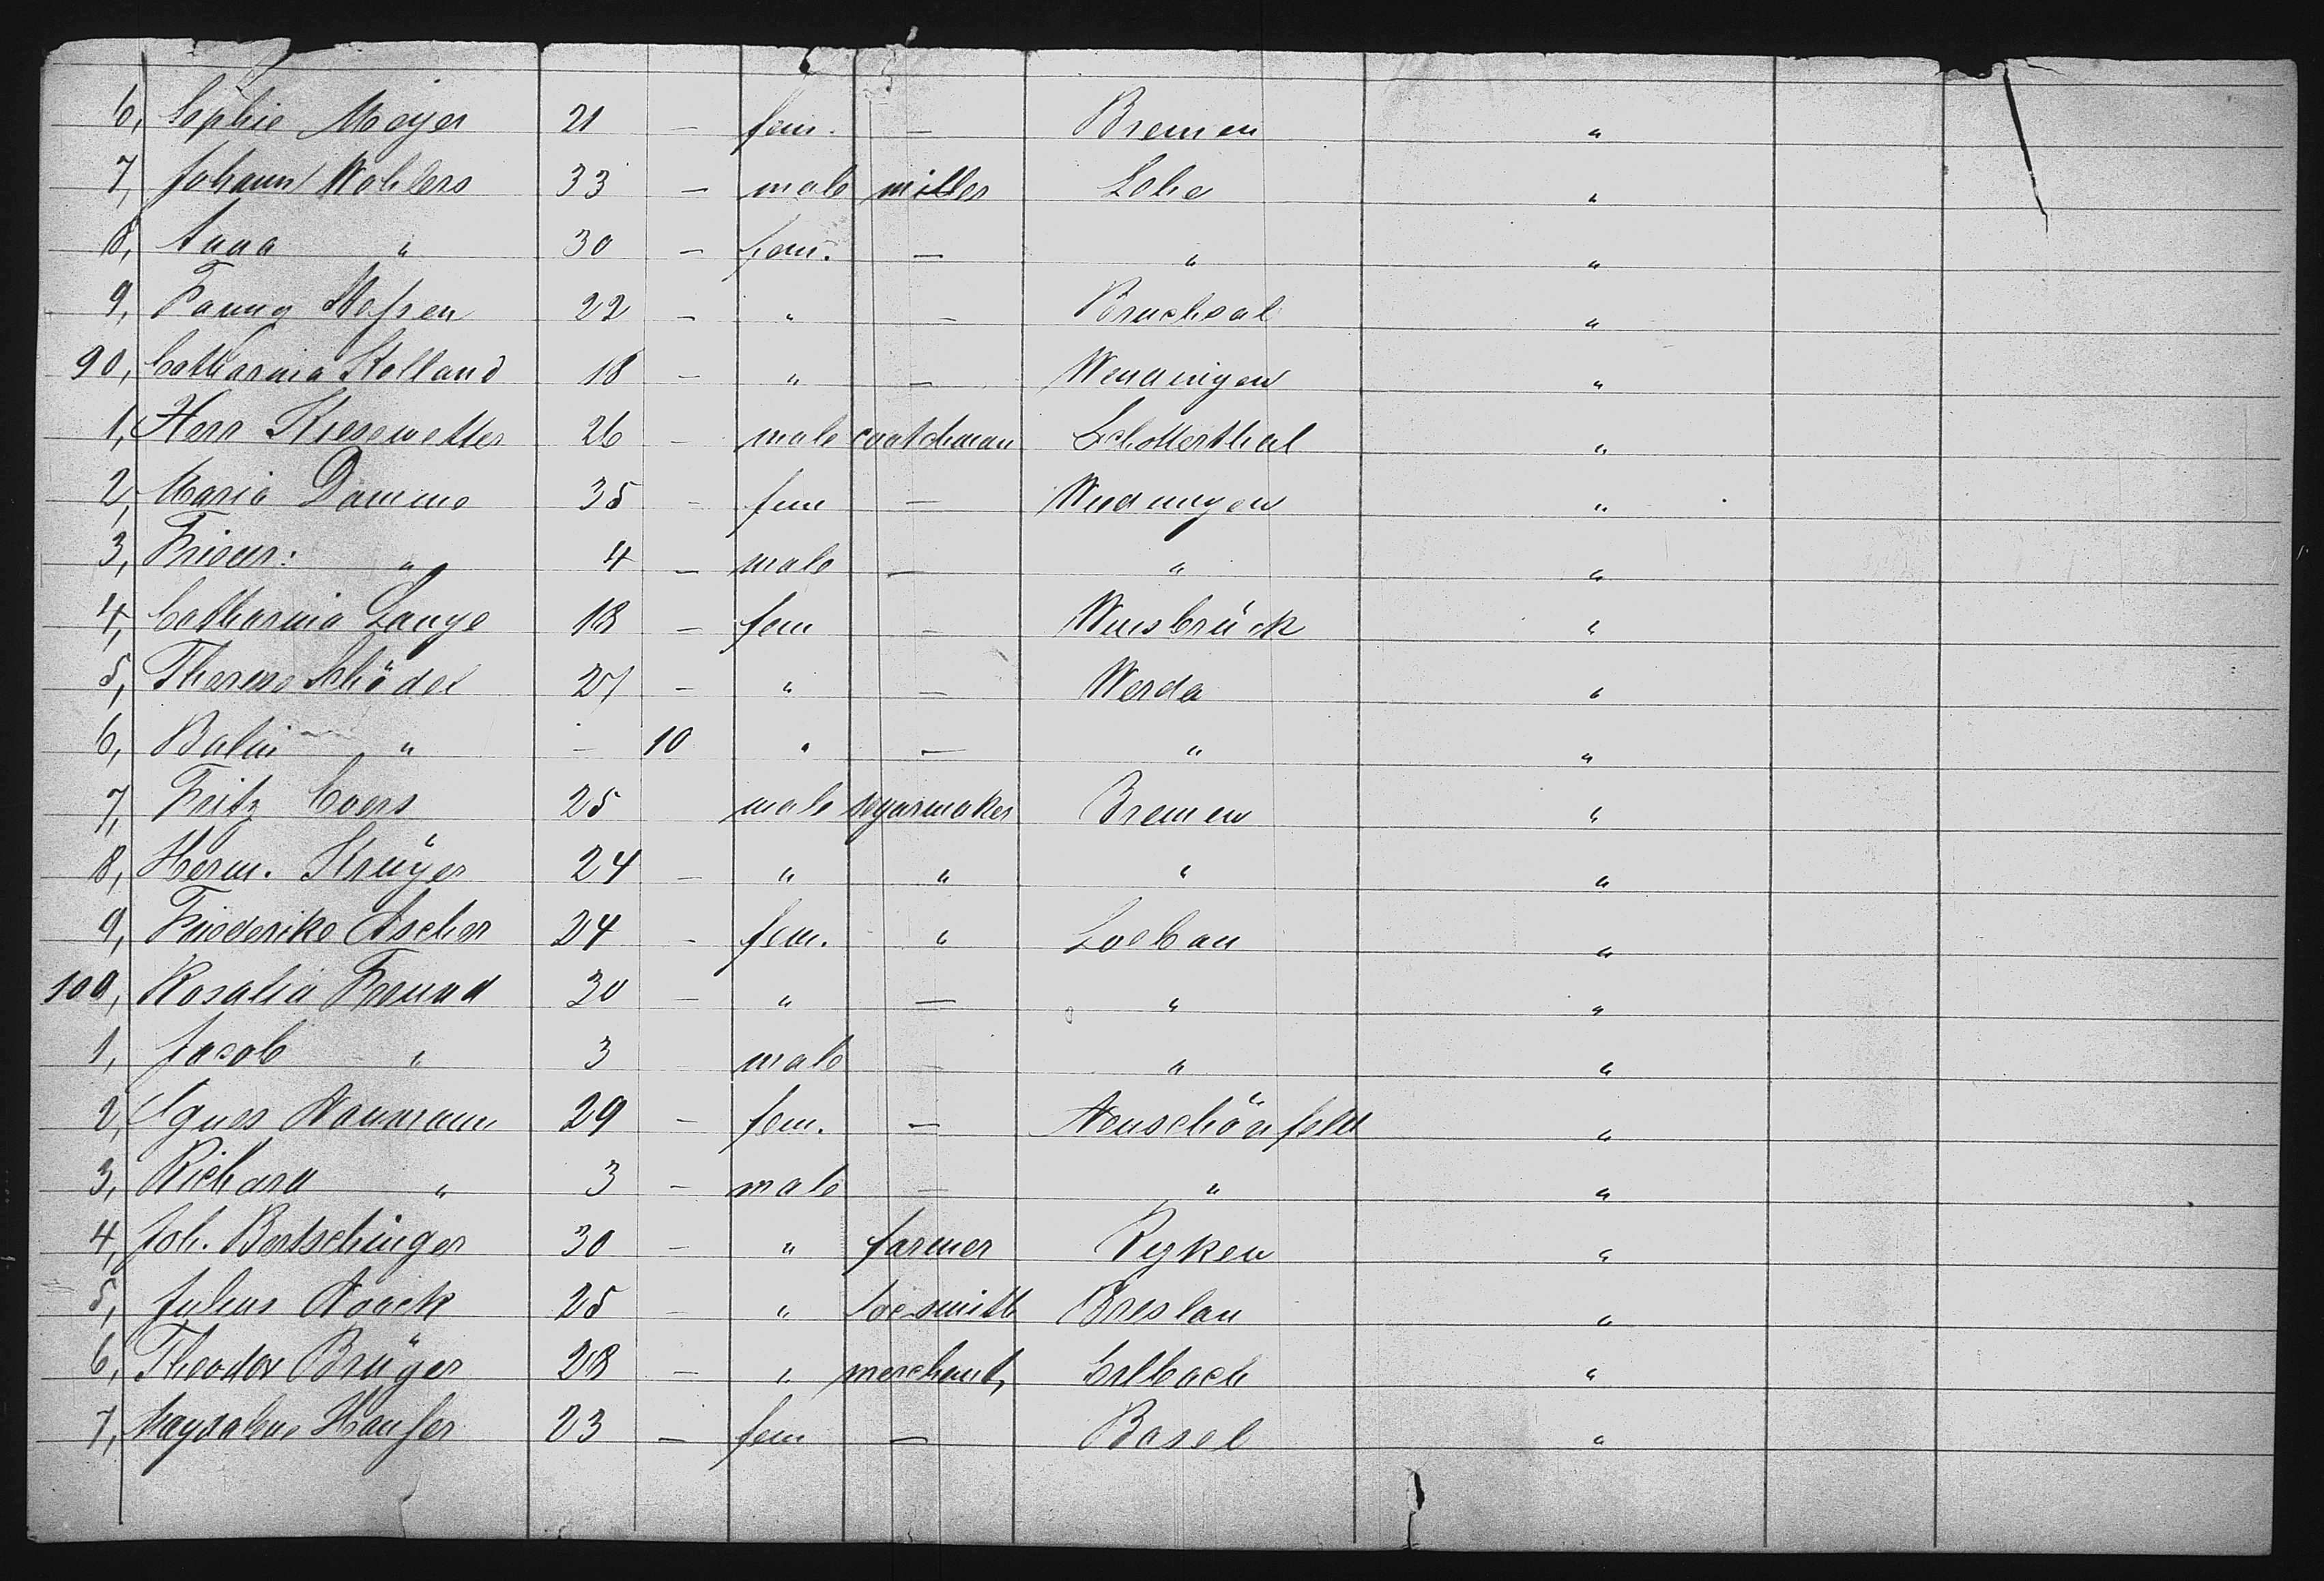 6, Sophie Meyer 21 – fem. – Bremen "
7, Johann Wohlers 33 – male miller Lehe "
8, Anna " 30 – fem. – " "
9, Fanny 22 – " – Bruchsal "
90, Catharina Holland 18 – " – Wendingen "
1, Herr Kiesewetter 26 – male coatchman Schotterthal "
2, Maria Damme 35 – fem – "
3, Friedr: " 4 – male – " "
4, Catharina Lange 18 – fem – "
5, Therese Schödel 27 – " – Werda "
6, " – 10 " – " "
7, Fritz Evers 25 male segarmaker Bremen "
8, Herm. Krüger 24 – " " " "
9, Friederike Ascher 24 – fem. " Loebau "
100, Rosalia Freund 30 – " – " "
1, Jacob " 3 – male – " "
2, Agnes Naumann 29 – fem. – Neuschönfeld "
3, Richard " 3 – male – " "
4, Joh. Bertschinger 30 – " farmer Ryken "
5, Julius Noack 25 – " Breslau "
6, Theodor Brüger 28 – " merchant, Erlbach "
7, Magdalene Hauser 23 – fem – Basel "